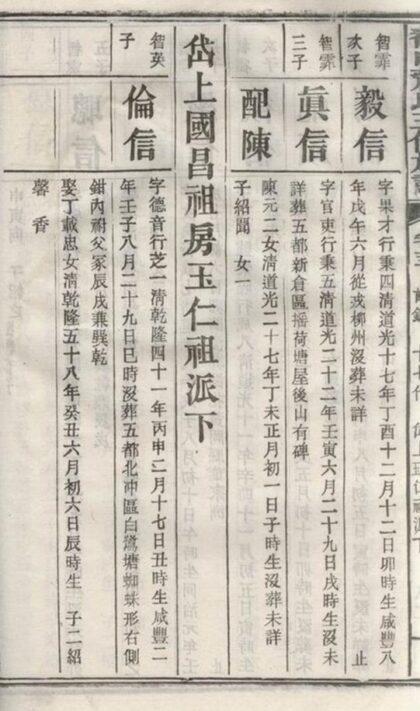 智霏
次子
毅信
字果才行秉四清道光十七年丁酉十二月十二日卯時生咸豐八
年戊午六月從戎柳州沒葬未詳 止
智霏
三子
眞信
字官吏行秉五清道光二十二年壬寅六月二十九日戌時生沒未
詳葬五都新倉區搖荷塘屋後山有碑
配陳
陳元二女清道光二十七年丁未正月初一日子時生沒葬未詳
子紹聞 女一
岱上國昌祖房玉仁祖派下
智英
子
倫信
字德音行芝一清乾隆四十一年丙申二月十七日丑時生咸豐二
年壬子八月二十九日巳時沒葬五都北冲區白鷺塘蜘蛛形右側
鉗內祔父冢辰戌兼巽乾
娶丁載忠女清乾隆五十八年癸丑六月初六日辰時生 子二紹
馨 香